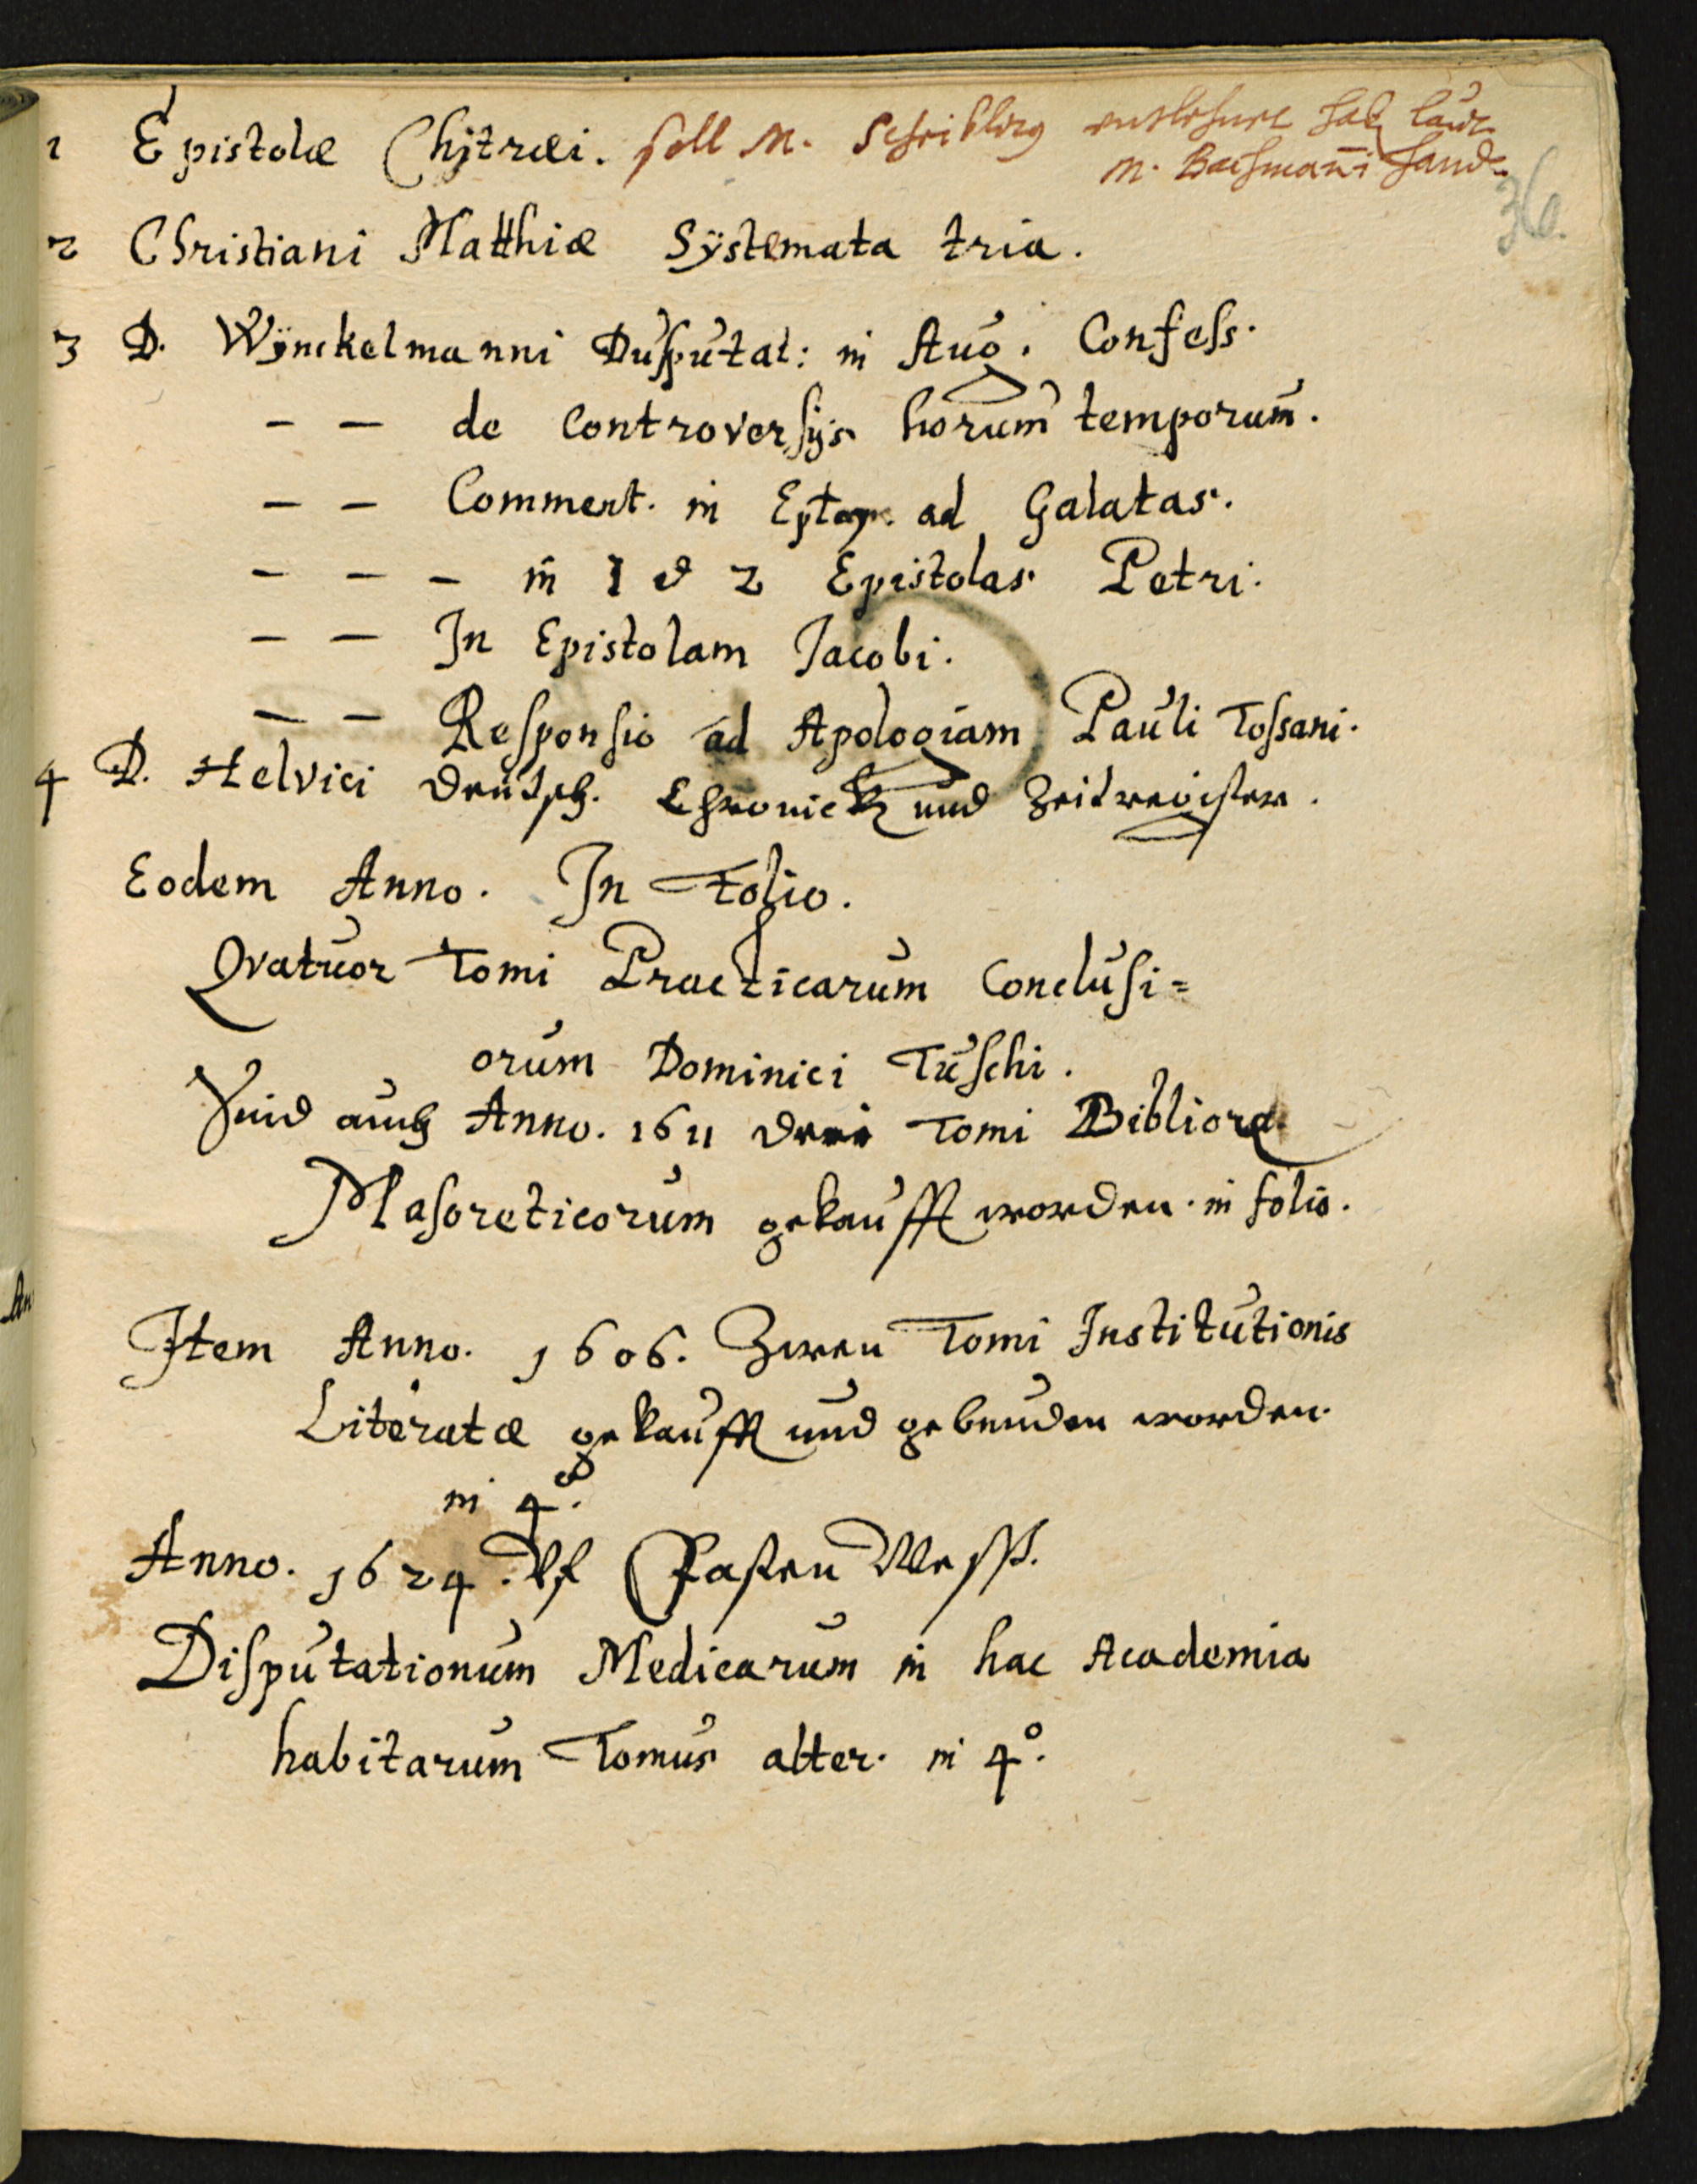 1 Epistolæ Chÿtræi. soll M. Schribling entlehnet hab laut
M. Bachmañi hand.
36.
2 Christiani Matthiæ Sÿstemata tria.
3 D. Wÿnckelmanni Dusputat: in Aug. Confess.
– – de Controversijs horum temporum.
– – Comment. in ad Galatas.
– – – in 1 et 2 Epistolas Petri.
– – In Epistolam Jacobi.
– – Responsio ad Apologiam Pauli Tossani.
4 D. Helvici deutsch. Chronick und Zeitregister.
Eodem Anno. In Folio.
Qvatuor Tomi Practicarum Conclusi=
orum Dominici Tuschi.
Sind auch Anno. 1611 drei Tomi Bibliorũ
Masoreticorum gekaufft worden. in folio.
Item Anno. 1606. Zween Tomi Institutionis
Literatæ gekaufft und gebunden worden.
in 4°.
Anno. 1624. Vf Fasten Mess.
Disputationum Medicarum in hac Academia
habitarum Tomus alter. in 4°.